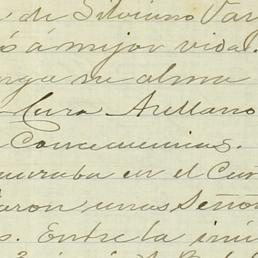 de Silviano Var
ó á mejor vida.
nga su alma
Cura Arellano
Concecuencias.
uraba en el Cur
aron unas Seño
s. Entre la